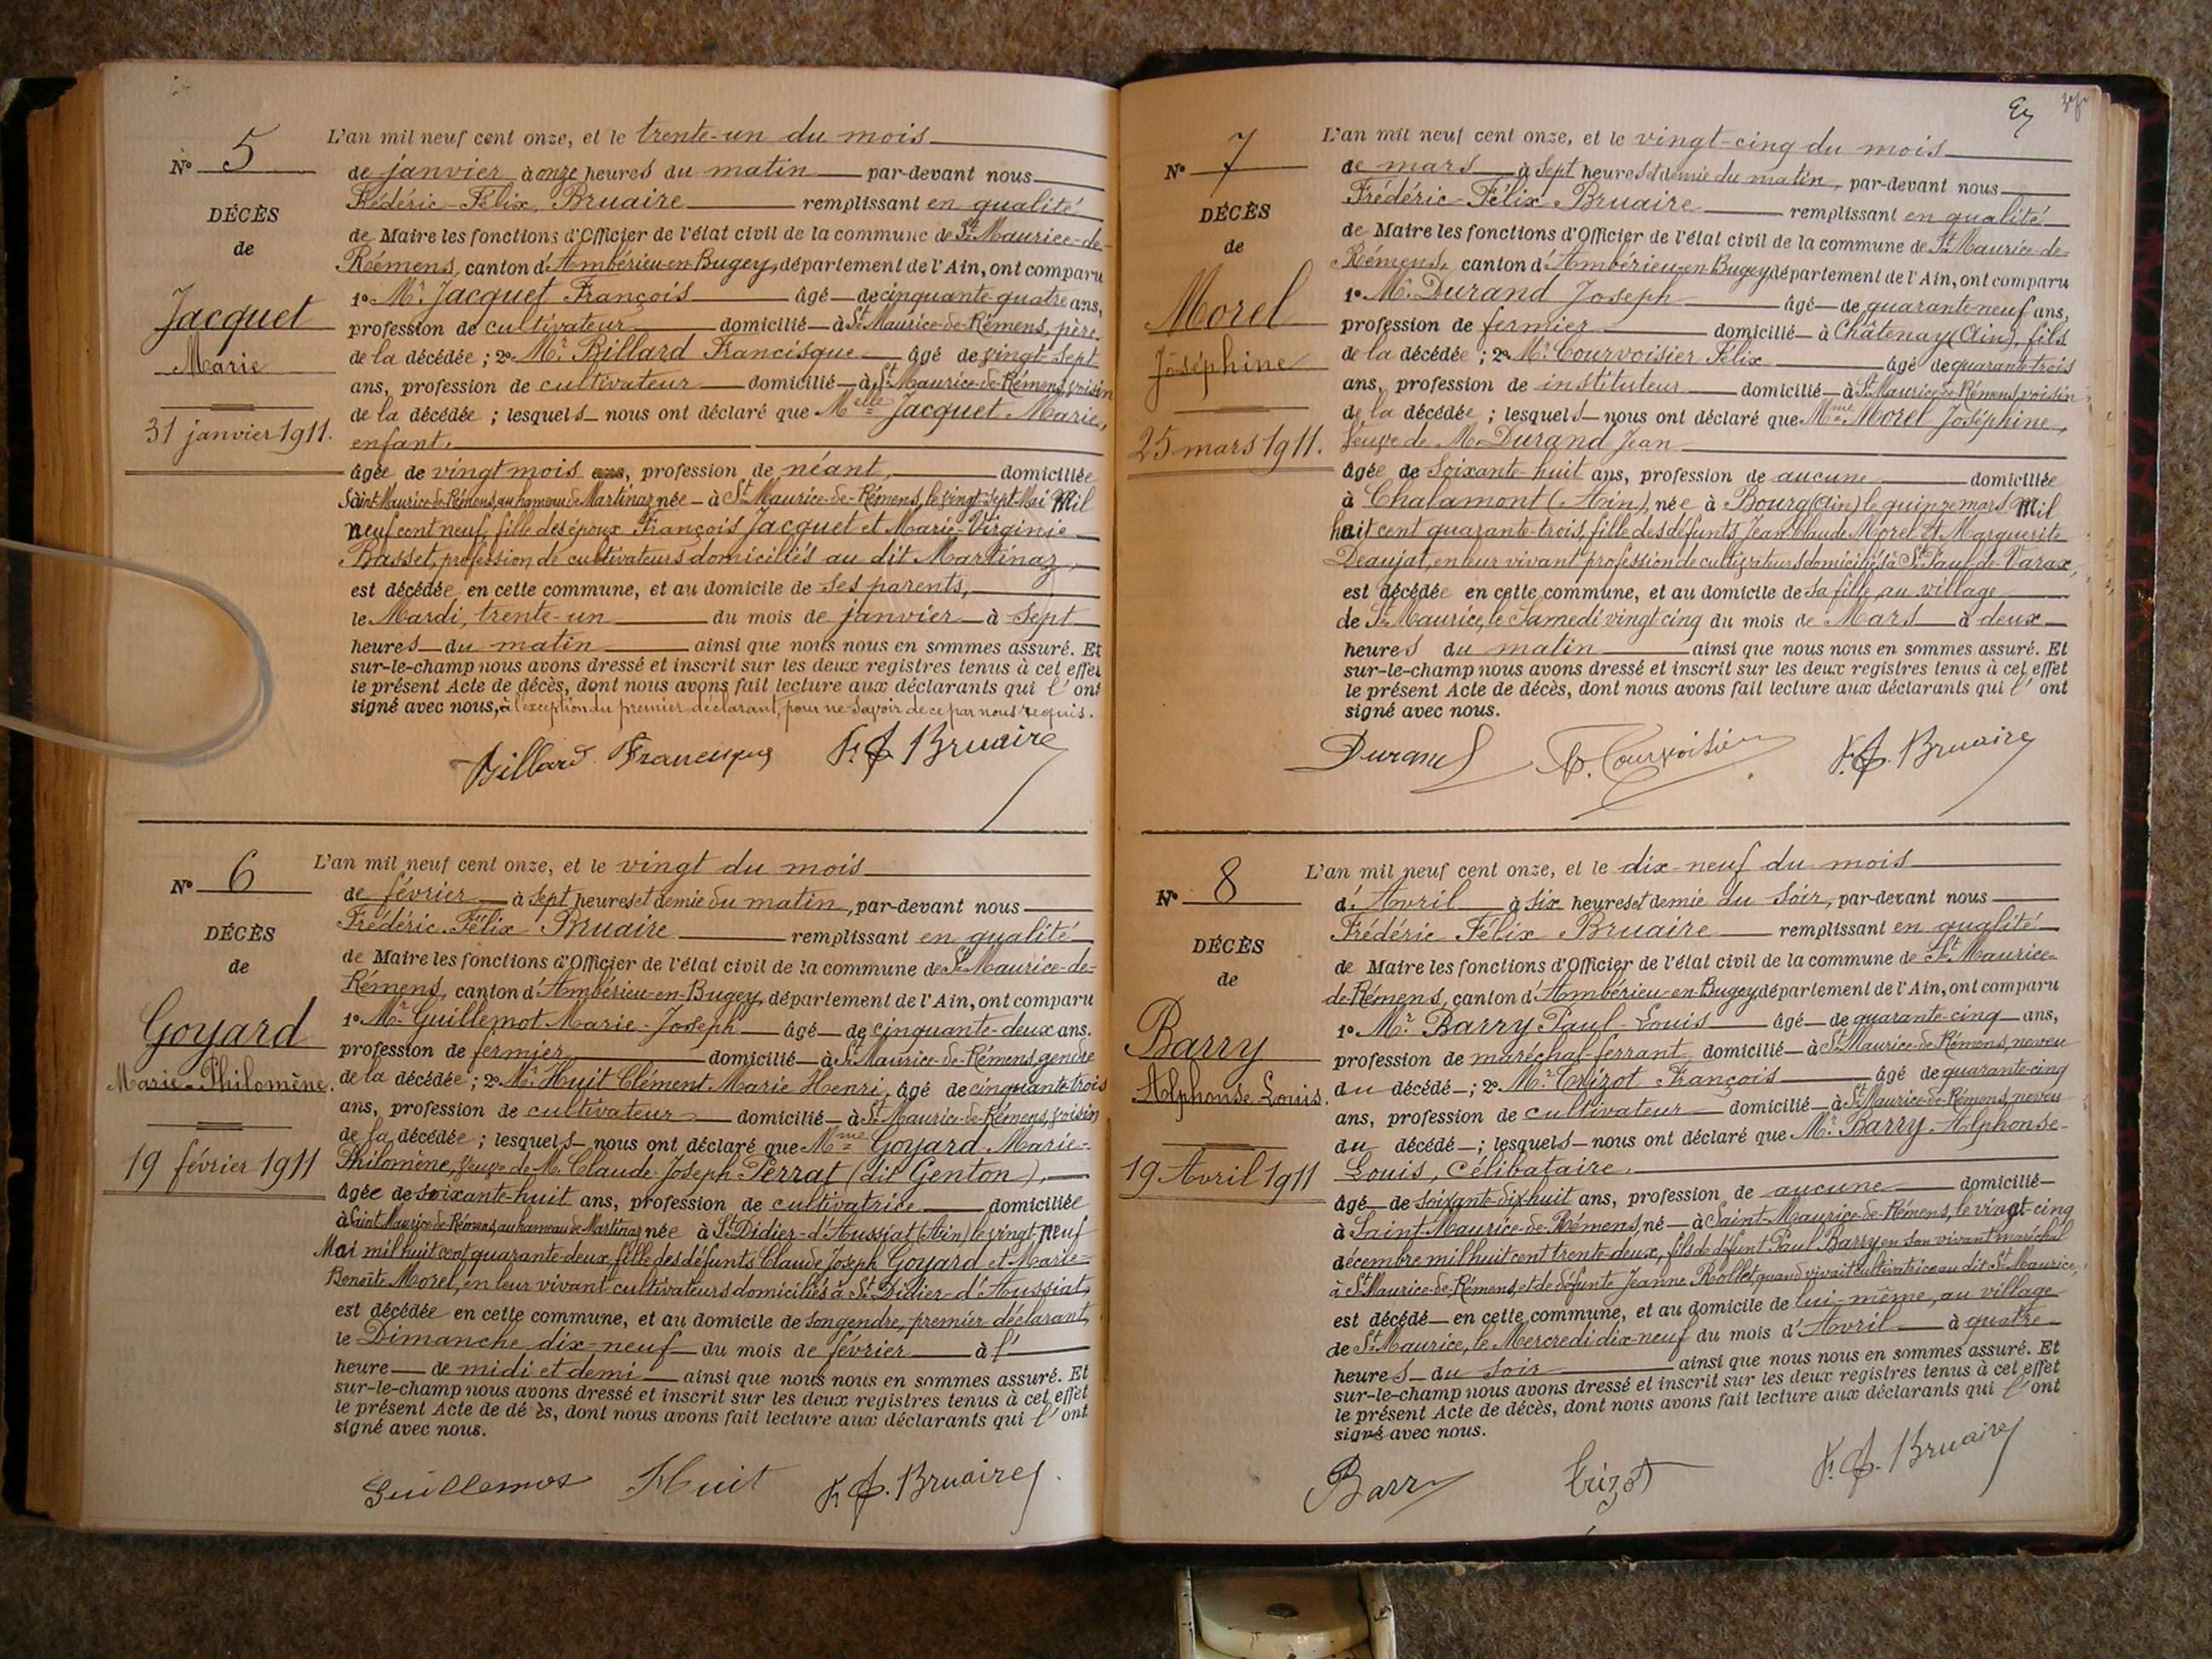 N° 5
DÉCÈS
de
Jacquet
Marie
31 janvier 1911.
L'an mil neuf cent onze, et le trente-un du mois
de janvier à onze heures du matin par-devant nous
Frédéric-Félix Bruaire remplissant en qualité
de Maire les fonctions d'Officier de l'état civil de la commune de St Maurice-de-
Rémens, canton d'Ambérieu-en-Bugey, département de l'Ain, ont comparu
1° Mr Jacquet François âgé de cinquante quatre ans,
profession de cultivateur domicilié à St Maurice-de-Rémens, père
de la décédée ; 2° Mr Billard Francisque âgé de vingt sept
ans, profession de cultivateur domicilié à St Maurice-de-Rémens, voisin
de la décédée ; lesquels nous ont déclaré que Melle Jacquet Marie,
enfant,
âgée de vingt mois ans, profession de néant, domiciliée
Saint Maurice-de-Rémens, au hameau de Martinaz née à St Maurice-de-Rémens, le vingt-sept Mai Mil
neuf cent neuf, fille des époux François Jacquet et Marie-Virginie
Basset, profession de cultivateurs domiciliés au dit Martinaz,
est décédée en cette commune, et au domicile de ses parents,
le Mardi, trente-un du mois de janvier à sept
heures du matin ainsi que nous nous en sommes assuré. Et
sur-le-champ nous avons dressé et inscrit sur les deux registres tenus à cet effet
le présent Acte de décès, dont nous avons fait lecture aux déclarants qui l'ont
signé avec nous, à l'exception du premier déclarant, pour ne savoir de ce par nous requis.
Billard Francisque F. F. Bruaire
N° 6
DÉCÈS
de
Goyard
Marie-Philomène.
19 février 1911
L'an mil neuf cent onze, et le vingt du mois
de février à sept heures et demie du matin, par-devant nous
Frédéric-Félix Bruaire remplissant en qualité
de Maire les fonctions d'Officier de l'état civil de la commune de St Maurice-de-
Rémens, canton d'Ambérieu-en-Bugey, département de l'Ain, ont comparu
1° Mr Guillemot Marie-Joseph âgé de cinquante-deux ans.
profession de fermier domicilié à St Maurice-de-Rémens, gendre
de la décédée ; 2° Mr Huit Clément Marie Henri, âgé de cinquante trois
ans, profession de cultivateur domicilié à St Maurice-de-Rémens, voisin
de la décédée ; lesquels nous ont déclaré que Mme Goyard Marie-
Philomène, veuve de Mr Claude-Joseph Perrat (dit Genton),
âgée de soixante-huit ans, profession de cultivatrice domiciliée
à Saint Maurice-de-Rémens, au hameau de Martinaz née à St Didier-d'Aussiat (Ain) le vingt-neuf
Mai mil huit cent quarante-deux, fille des défunts Claude Joseph Goyard et Marie-
Benoîte Morel, en leur vivant cultivateurs domiciliés à St Didier-d'Aussiat,
est décédée en cette commune, et au domicile de son gendre, premier déclarant,
le Dimanche dix-neuf du mois de février à l'
heure de midi et demi ainsi que nous nous en sommes assuré. Et
sur-le-champ nous avons dressé et inscrit sur les deux registres tenus à cet effet
le présent Acte de dé ès, dont nous avons fait lecture aux déclarants qui l'ont
signé avec nous.
Guillemot Huit F. F. Bruaire
N° 7
DÉCÈS
de
Morel
Joséphine
25 mars 1911.
L'an mil neuf cent onze, et le vingt-cinq du mois
de mars à sept heures et demie du matin, par-devant nous
Frédéric-Félix Bruaire remplissant en qualité
de Maire les fonctions d'Officier de l'état civil de la commune de St Maurice-de-
Rémens, canton d'Ambérieu-en-Bugey département de l'Ain, ont comparu
1° Mr Durand Joseph âgé de quarante-neuf ans,
profession de fermier domicilié à Châtenay (Ain), fils
de la décédée ; 2° Mr Courvoisier Félix âgé de quarante trois
ans, profession de instituteur domicilié à St Maurice-de-Rémens, voisin
de la décédée ; lesquels nous ont déclaré que Mme Morel Joséphine,
Veuve de Mr Durand Jean
âgée de soixante-huit ans, profession de aucune domiciliée
à Chalamont (Ain), née à Bourg (Ain) le quinze mars Mil
huit cent quarante-trois, fille des défunts Jean Claude Morel et Marguerite
Deaujat, en leur vivant profession de cultivateurs domiciliés à St Paul-de-Varax,
est décédée en cette commune, et au domicile de sa fille, au village
de St Maurice, le Samedi vingt cinq du mois de Mars à deux
heures du matin ainsi que nous nous en sommes assuré. Et
sur-le-champ nous avons dressé et inscrit sur les deux registres tenus à cet effet
le présent Acte de décès, dont nous avons fait lecture aux déclarants qui l'ont
signé avec nous.
Durand F. Courvoisier F. F. Bruaire
N° 8
DÉCÈS
de
Barry
Alphonse-Louis.
19 Avril 1911
L'an mil neuf cent onze, et le dix-neuf du mois
d'Avril à six heures et demie du soir, par-devant nous
Frédéric Félix Bruaire remplissant en qualité
de Maire les fonctions d'Officier de l'état civil de la commune de St Maurice-
de-Rémens, canton d'Ambérieu-en-Bugey département de l'Ain, ont comparu
1° Mr Barry Paul-Louis âgé de quarante-cinq ans,
profession de maréchal-ferrant, domicilié à St Maurice-de-Rémens, neveu
du décédé ; 2° Mr Crizot François âgé de quarante-cinq
ans, profession de cultivateur domicilié à St Maurice-de-Rémens, neveu
du décédé ; lesquels nous ont déclaré que Mr Barry Alphonse-
Louis, célibataire,
âgé de soixante-dix-huit ans, profession de aucune domicilié
à Saint-Maurice-de-Rémens, né à Saint-Maurice-de-Rémens, le vingt-cinq
décembre mil huit cent trente-deux, fils de défunt Paul Barry en son vivant maréchal
à St Maurice-de-Rémens, et de défunte Jeanne Rollet, quand vivait cultivatrice au dit St Maurice,
est décédé en cette commune, et au domicile de lui-même, au village
de St Maurice, le Mercredi dix-neuf du mois d'Avril à quatre
heures du soir ainsi que nous nous en sommes assuré. Et
sur-le-champ nous avons dressé et inscrit sur les deux registres tenus à cet effet
le présent Acte de décès, dont nous avons fait lecture aux déclarants qui l'ont
signé avec nous.
Barry Crizot F. F. Bruaire